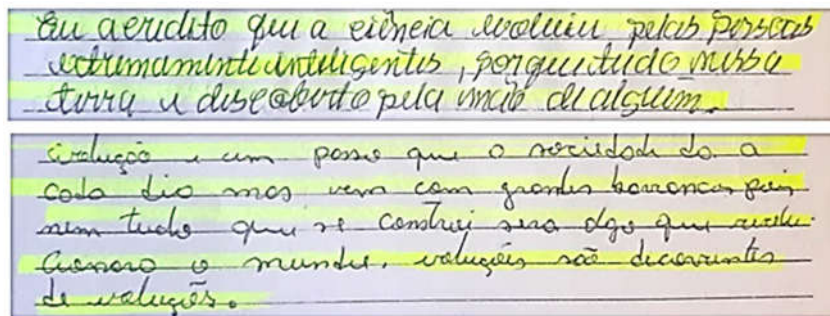 Eu acridito que a ciência evoluiu pelas pessoas
extrimamente inteligentes, porque tudo nessa
terra e discoberto pela mão de alguém.
Evolução e um passo que a sociedade da a
cada dia mas vem com grandes barrancos pois
nem tudo que se construi sera algo que revolu-
cionara o mundo. evoluções são dicorrentes
de evoluções.